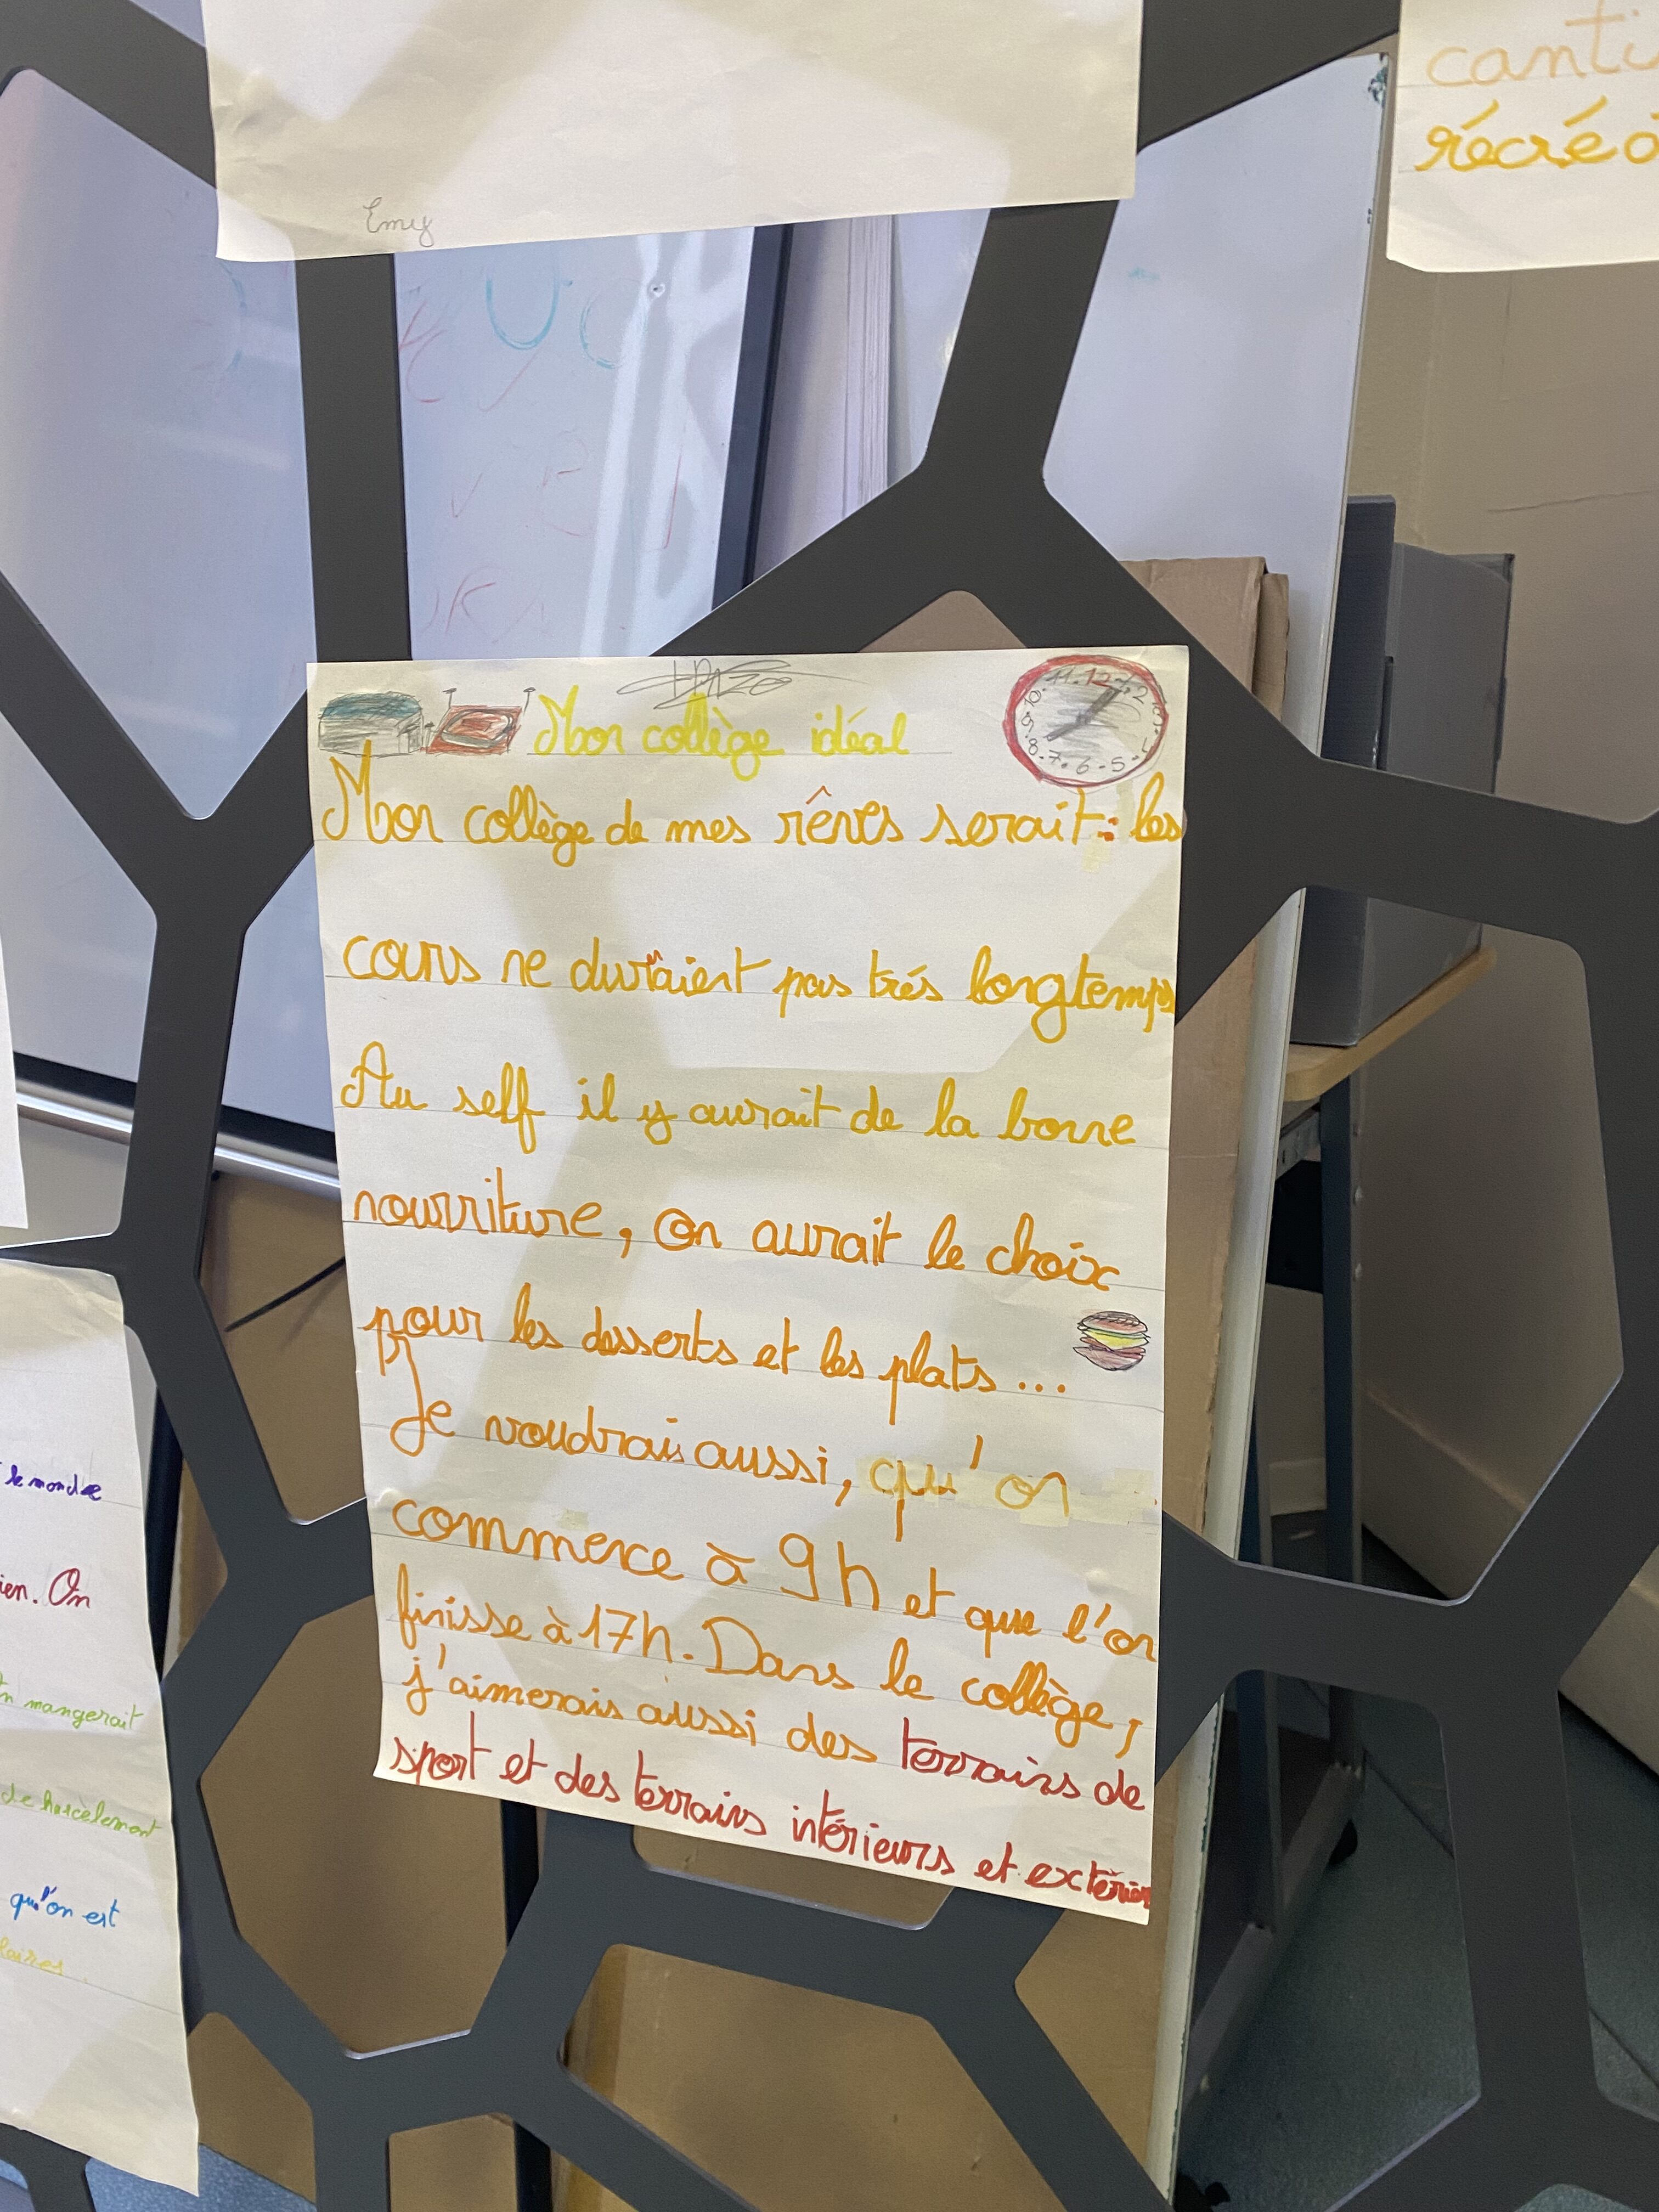 Emy
canti
récré
Mon collège idéal
11 12 1 2
10
9
8 7 6 5
Mon collège de mes rêves serait : les
cours ne duraient pas très longtemps
Au self il y aurait de la bonne
nourriture, On aurait le choix
pour les desserts et les plats ...
Je voudrais aussi, qu'on
commence à 9h et que l'on
finisse à 17h. Dans le collège,
j'aimerais aussi des terrains de
sport et des terrains intérieurs et extérieurs
le monde
ien. On
n mangerait
de harcèlement
qu'on est
laires.